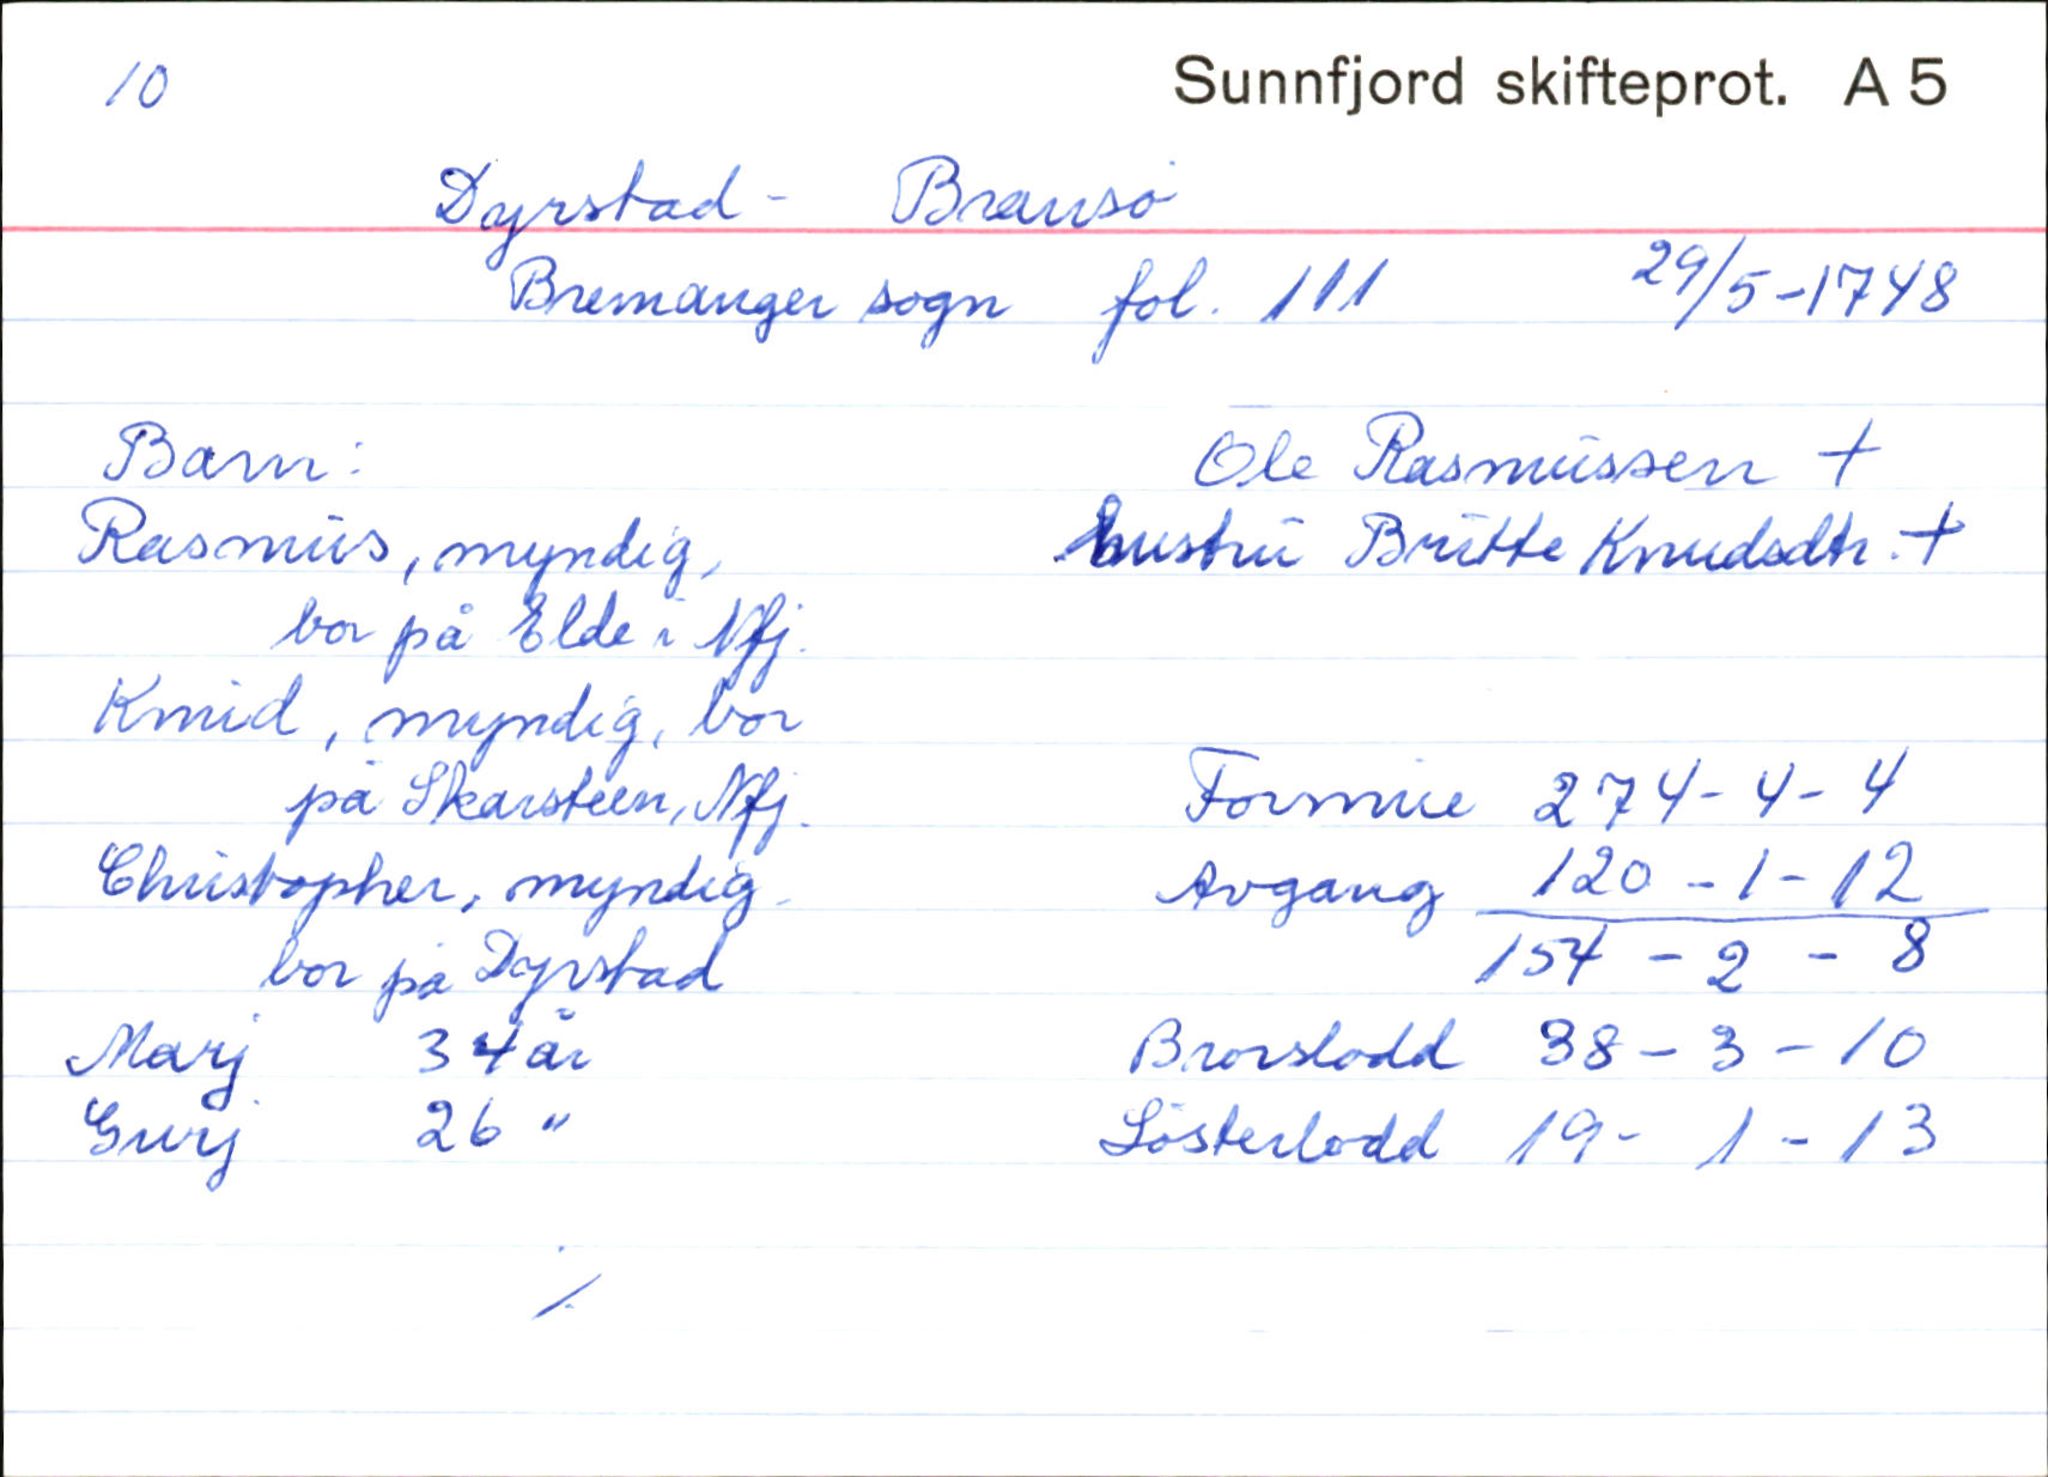 10
Sunnfjord skifteprot. A 5
Dyrstad - Bransö
Bremanger sogn fol. 111 29/5-1748
Barn:
Rasmus, myndig,
bor på Elde i Nfj.
Knud, myndig, bor
på Skarsteen, Nfj.
Christopher, myndig
bor på Dyrstad
Marj 34 år
Gurj 26 "
Ole Rasmussen +
hustru Britte Knudsdtr. +
Formue 274-4-4
Avgang 120-1-12
154-2-8
Brorslodd 38-3-10
Sösterlodd 19-1-13